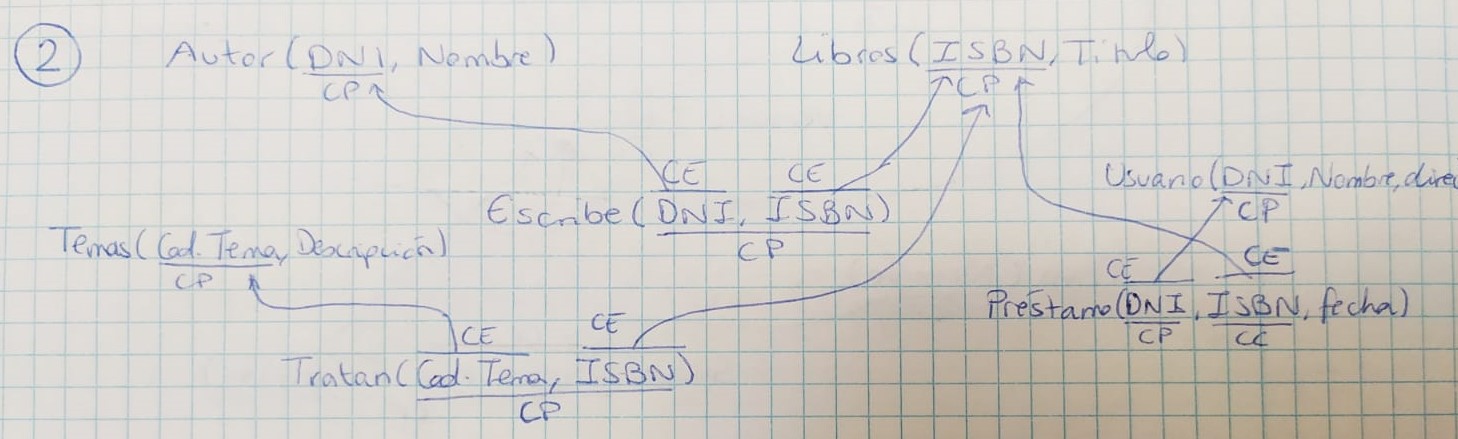 2 Autor(DNI, Nombre) Libros(ISBN, Titulo)
CP CP
CE CE
Escribe(DNI, ISBN)
CP
Usuario(DNI, Nombre, direc
CP
Temas(Cod. Tema, Descripción)
CP
CE CE
Préstamo(DNI, ISBN, fecha)
CP CE
CE CE
Tratan(Cod. Tema, ISBN)
CP